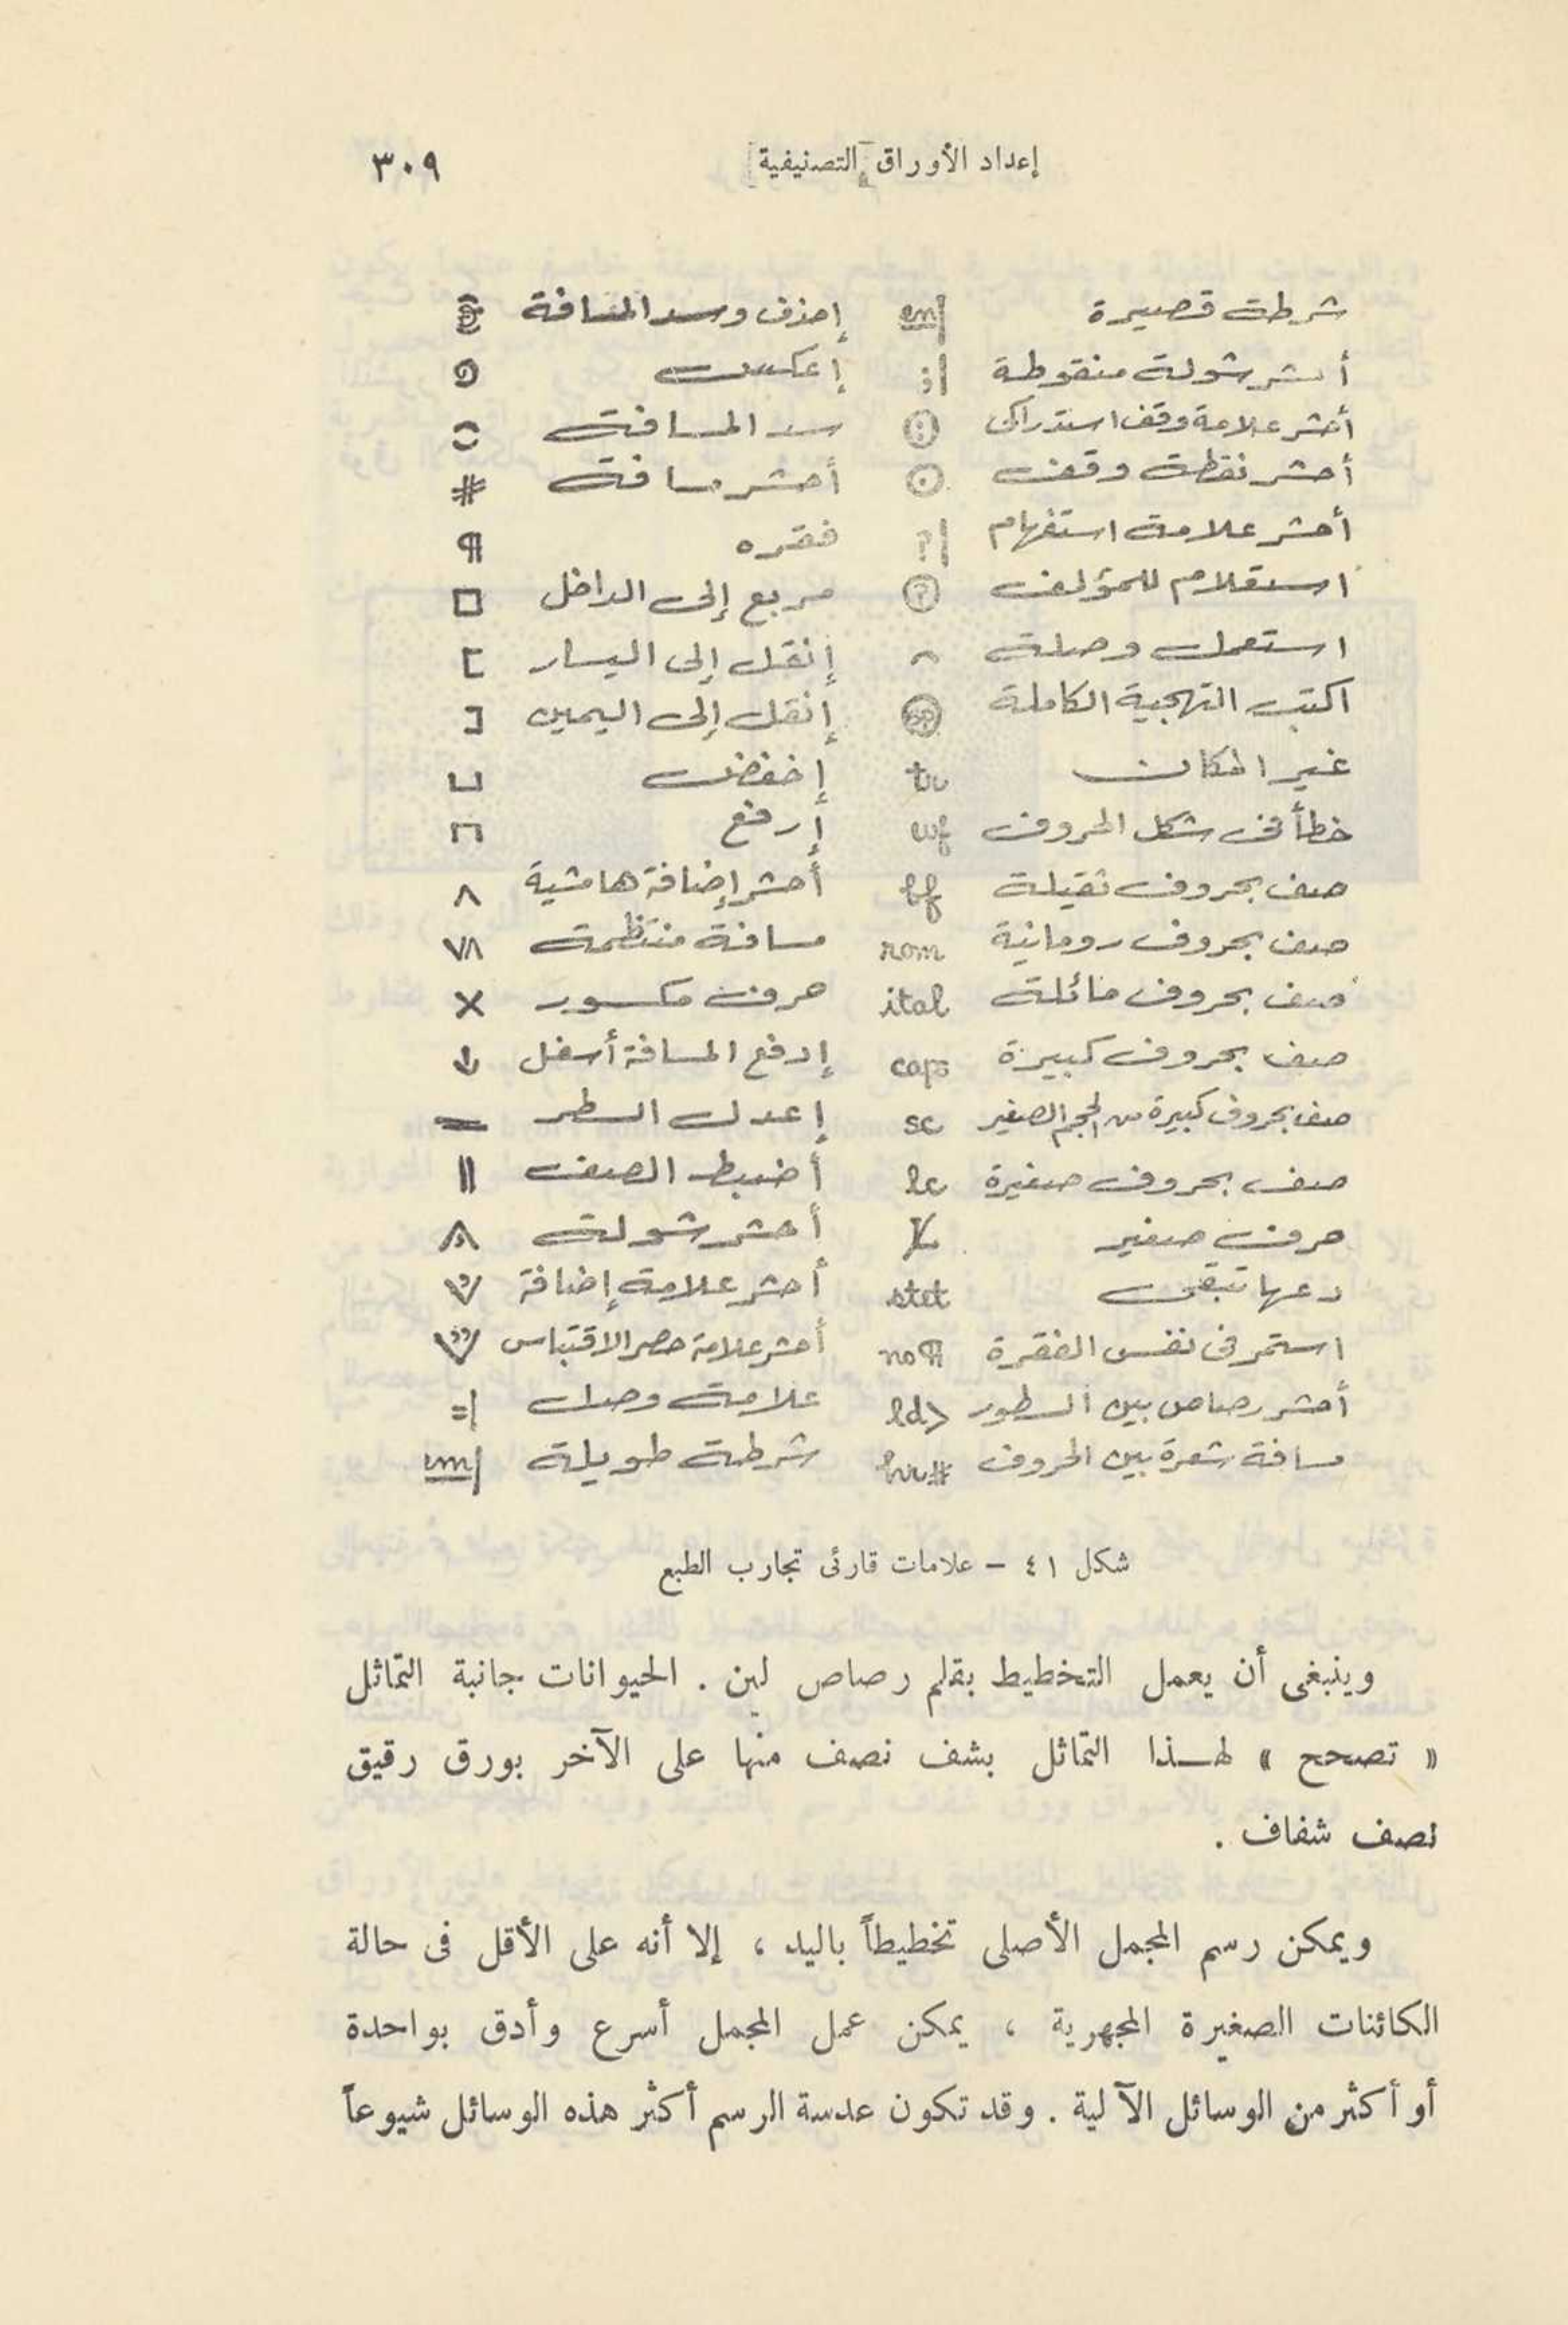 إعداد الأوراق التصنيفية ٣٠٩
شرطة قصيرة en| إحذف وسد المسافة
أحشر شولة منقوطة ;| إعكس
أحشر علامة وقف استدراكى : سد المسافة
أحشر نقطة وقف . أحشر مسافة #
أحشر علامة استفهام ?| فقره ¶
استعلام للمؤلف ? مربع إلى الداخل □
استعمل وصلة ⌢ إنقل إلى اليسار [
اكتب التهجية الكاملة sp إنقل إلى اليمين ]
غير المكان tr إخفض ⊔
خطأ فى شكل الحروف wf إرفع ⊓
صف بحروف ثقيلة bf أحشر إضافة هامشية ∧
صف بحروف رومانية rom مسافة منتظمة ∨∧
صف بحروف مائلة ital حرف مكسور ×
صف بحروف كبيرة caps إدفع المسافة أسفل ↓
صف بحروف كبيرة من الحجم الصغير sc إعدل السطر =
صف بحروف صغيرة lc أضبط الصف ||
حرف صغير أحشر شولة
دعها تبقى stet أحشر علامة إضافة
استمر فى نفس الفقرة no ¶ أحشر علامة حصر الاقتباس
أحشر رصاص بين السطور ld> علامة وصل =|
مسافة شعرة بين الحروف hr # شرطة طويلة em|
شكل ٤١ – علامات قارئى تجارب الطبع
وينبغى أن يعمل التخطيط بقلم رصاص لين . الحيوانات جانبة التماثل
« تصحح » لهـذا التماثل بشف نصف منها على الآخر بورق رقيق
نصف شفاف .
ويمكن رسم المجمل الأصلى تخطيطاً باليد ، إلا أنه على الأقل فى حالة
الكائنات الصغيرة المجهرية ، يمكن عمل المجمل أسرع وأدق بواحدة
أو أكثر من الوسائل الآلية . وقد تكون عدسة الرسم أكثر هذه الوسائل شيوعاً